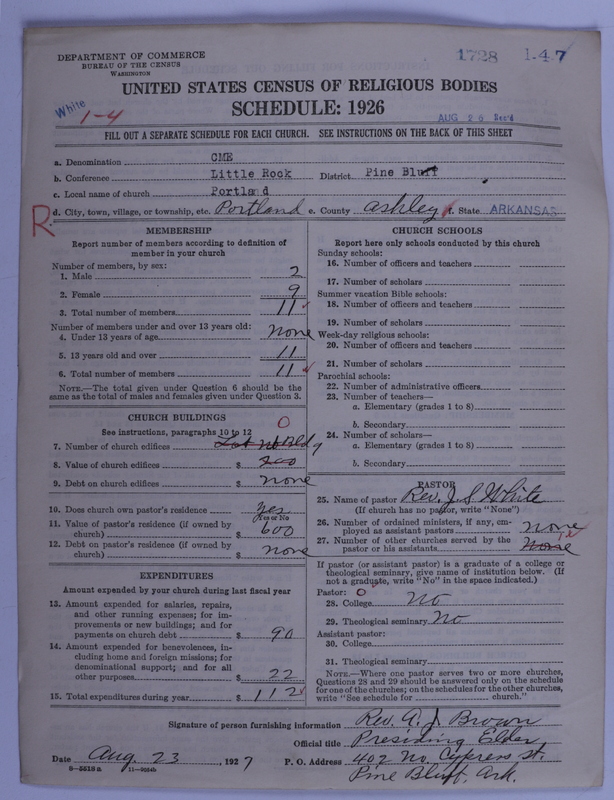 DEPARTMENT OF COMMERCE
BUREAU OF THE CENSUS
WASHINGTON
1728 1-47
UNITED STATES CENSUS OF RELIGIOUS BODIES
SCHEDULE: 1926
White
1-4
AUG 26 Rec'd
FILL OUT A SEPARATE SCHEDULE FOR EACH CHURCH. SEE INSTRUCTIONS ON THE BACK OF THIS SHEET
a. Denomination CME
b. Conference Little Rock District Pine Bluff
c. Local name of church Portland
R d. City, town, village, or township, etc. Portland e. County Ashley f. State ARKANSAS
MEMBERSHIP
Report number of members according to definition of
member in your church
Number of members, by sex:
1. Male 2
2. Female 9
3. Total number of members 11
Number of members under and over 13 years old:
4. Under 13 years of age none
5. 13 years old and over 11
6. Total number of members 11
NOTE.—The total given under Question 6 should be
same as the total of males and females given under Question 3.
CHURCH BUILDINGS
See instructions, paragraphs 10 to 12
0
7. Number of church edifices Lot no Bldg
8. Value of church edifices $ 200
9. Debt on church edifices $ none
10. Does church own pastor's residence yes
Yes or No
11. Value of pastor's residence (if owned by
church) $ 600
12. Debt on pastor's residence (if owned by
church) $ none
EXPENDITURES
Amount expended by your church during last fiscal year
13. Amount expended for salaries, repairs,
and other running expenses; for im-
provements or new buildings; and for
payments on church debt $ 90
14. Amount expended for benevolences, in-
cluding home and foreign missions; for
denominational support; and for all
other purposes $ 22
15. Total expenditures during year $ 112
CHURCH SCHOOLS
Report here only schools conducted by this church
Sunday schools:
16. Number of officers and teachers
17. Number of scholars
Summer vacation Bible schools:
18. Number of officers and teachers
19. Number of scholars
Week-day religious schools:
20. Number of officers and teachers
21. Number of scholars
Parochial schools:
22. Number of administrative officers
23. Number of teachers—
a. Elementary (grades 1 to 8)
b. Secondary
24. Number of scholars—
a. Elementary (grades 1 to 8)
b. Secondary
PASTOR
25. Name of pastor Rev. J. S. White
(If church has no pastor, write "None")
26. Number of ordained ministers, if any, em-
ployed as assistant pastors none
27. Number of other churches served by the
pastor or his assistants None
If pastor (or assistant pastor) is a graduate of a college or
theological seminary, give name of institution below. (If
not a graduate, write "No" in the space indicated.)
Pastor: 0
28. College No
29. Theological seminary No
Assistant pastor:
30. College
31. Theological seminary
NOTE.—Where one pastor serves two or more churches,
Questions 28 and 29 should be answered only on the schedule
for one of the churches; on the schedules for the other churches,
write "See schedule for church."
Signature of person furnishing information Rev. A. J. Brown
Official title Presiding Elder
Date Aug. 23, 1927 P. O. Address 402 No. Cypress st.
Pine Bluff, Ark.